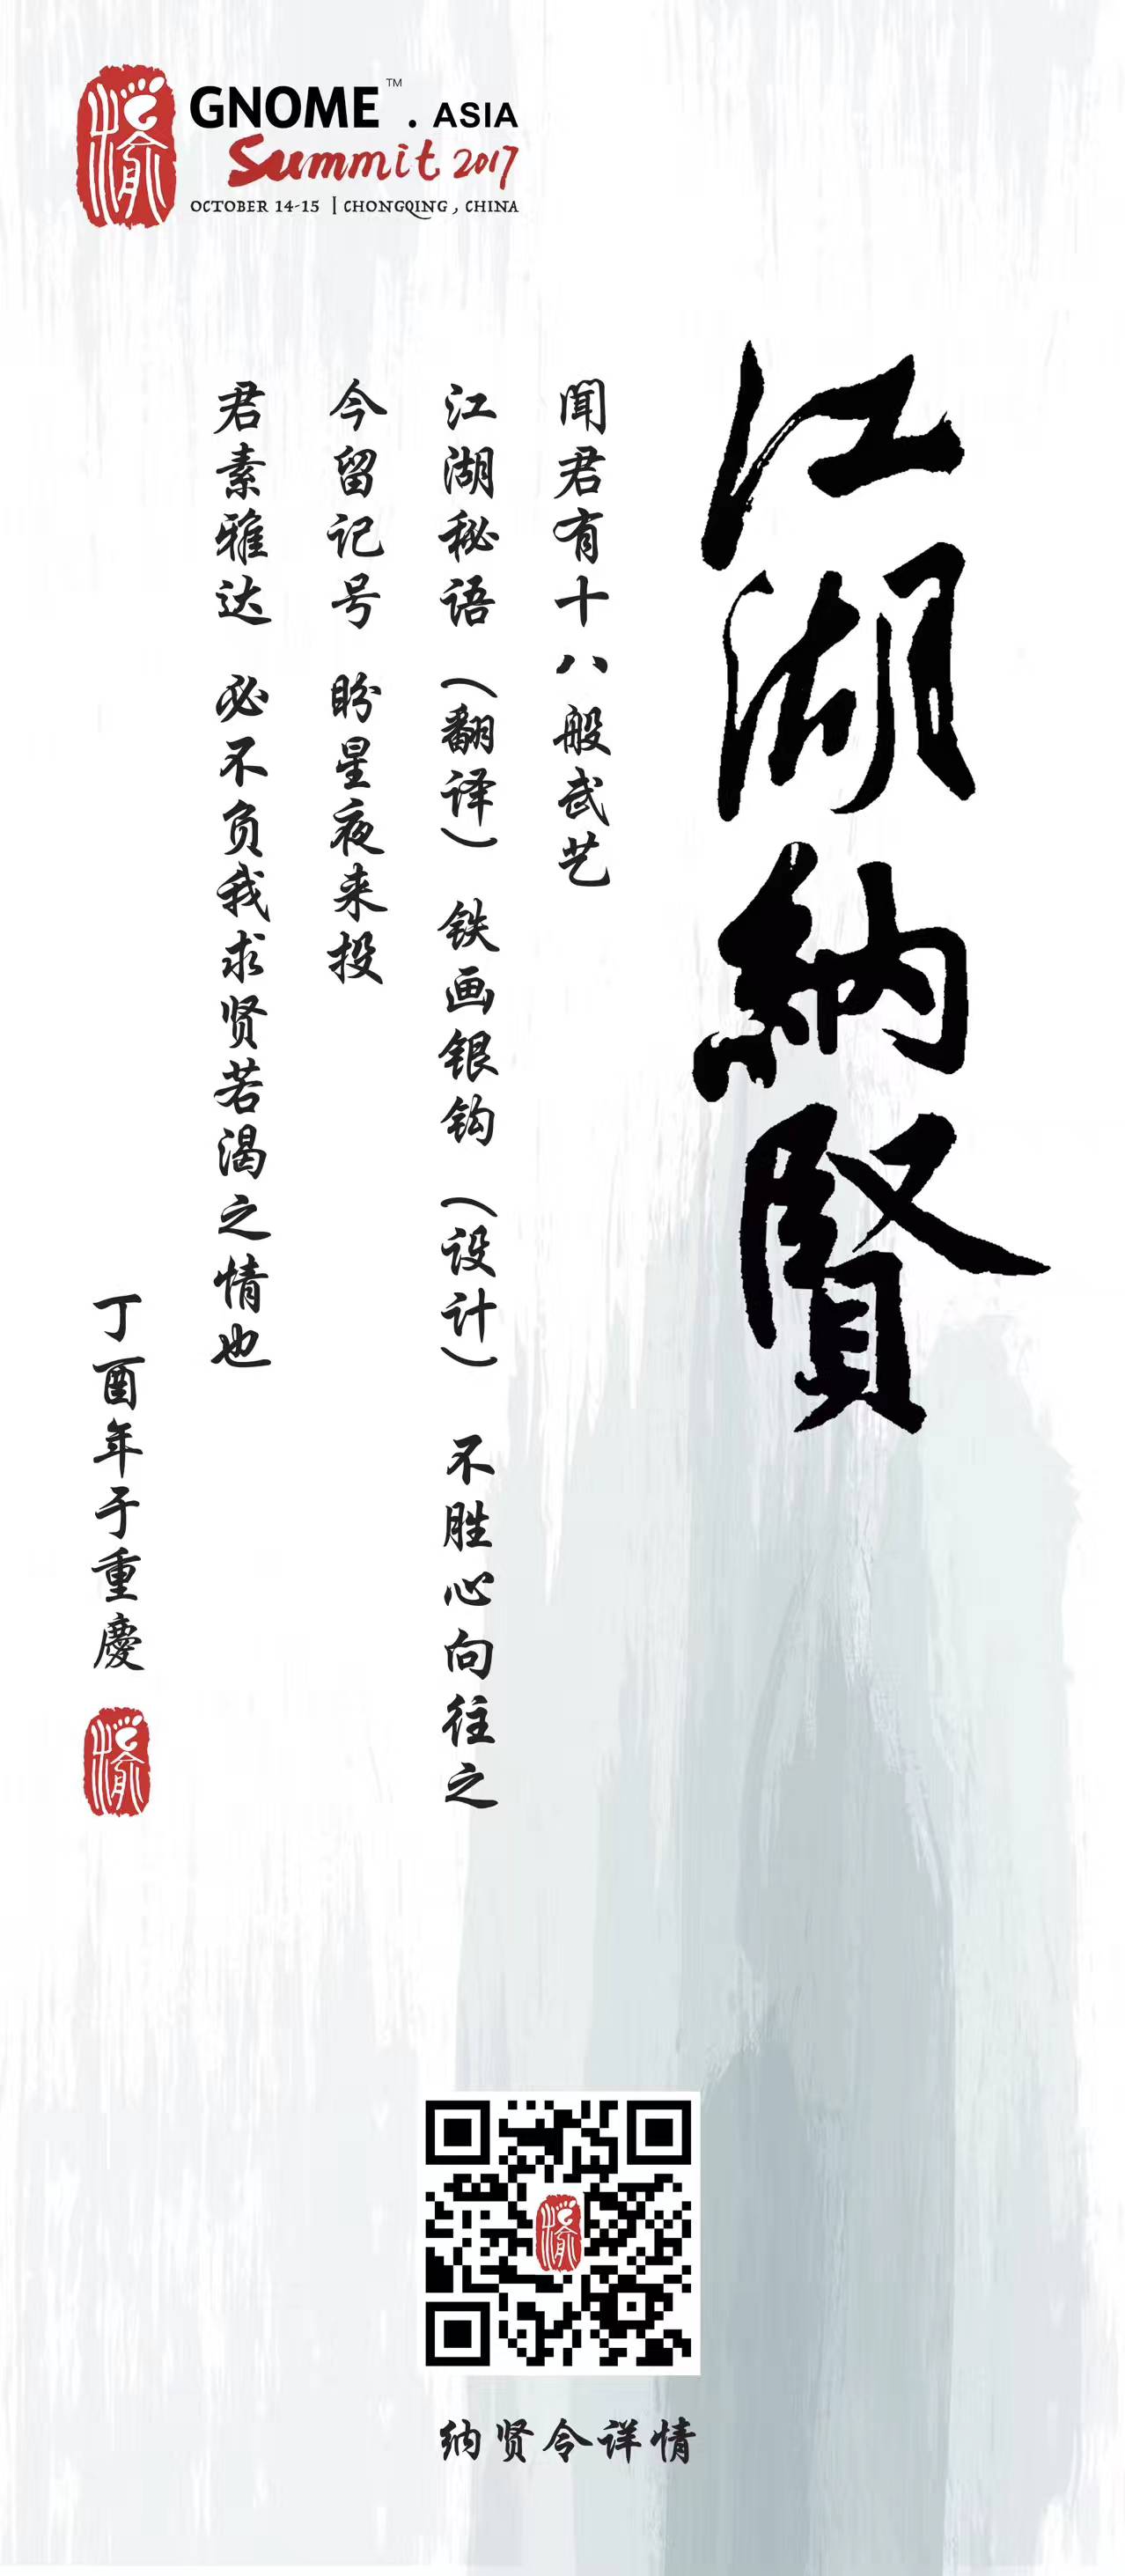 GNOME™.ASIA
Summit 2017
OCTOBER 14-15 | CHONGQING, CHINA
江湖納賢
闻君有十八般武艺
江湖秘语（翻译）铁画银钩（设计）不胜心向往之
今留记号 盼星夜来投
君素雅达 必不负我求贤若渴之情也
丁酉年于重慶
纳贤令详情